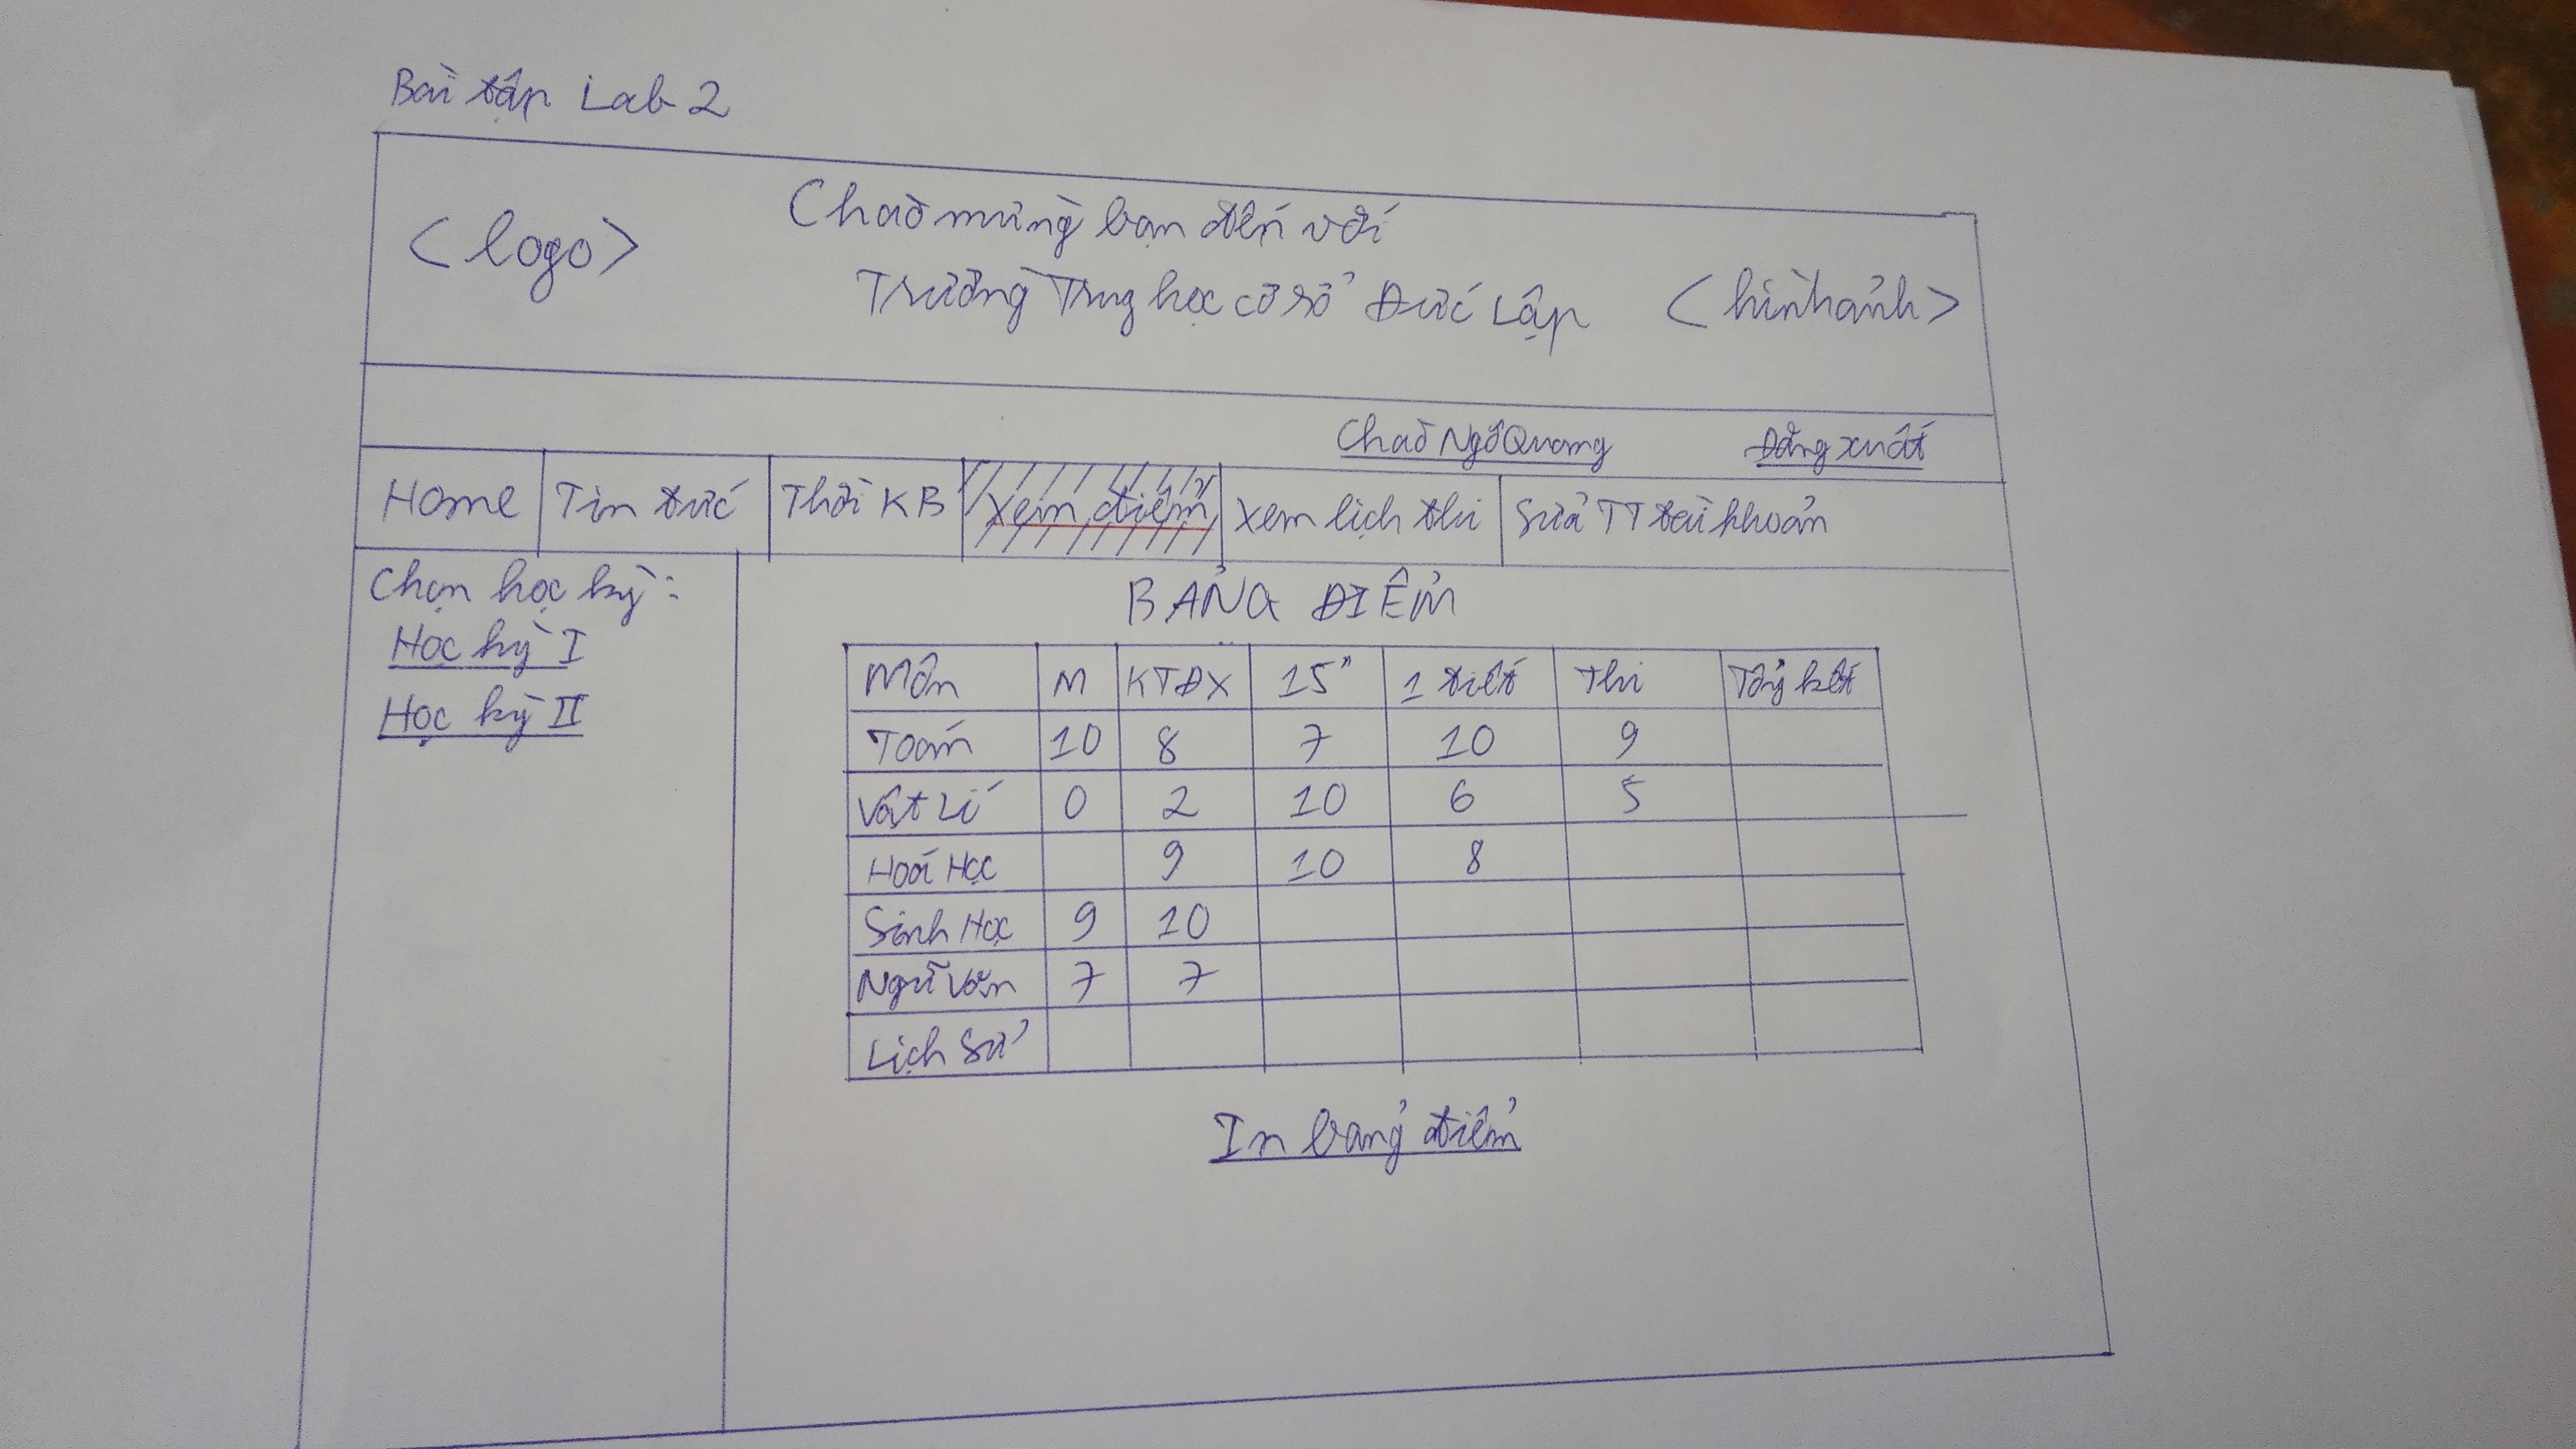 Bài tập Lab 2
<logo>
Chào mừng bạn đến với
Trường Trung học cơ sở Đức Lập
<hình ảnh>
Chào Ngô Quang Đăng xuất
Home Tin tức Thời KB Xem điểm Xem lịch thi Sửa TT tài khoản
Chọn học kỳ:
Học kỳ I
Học kỳ II
BẢNG ĐIỂM
Môn M KTĐX 15" 1 tiết Thi Tổng kết
Toán 10 8 7 10 9
Vật Lí 0 2 10 6 5
Hoá Học 9 10 8
Sinh Học 9 10
Ngữ Văn 7 7
Lịch Sử
In bảng điểm